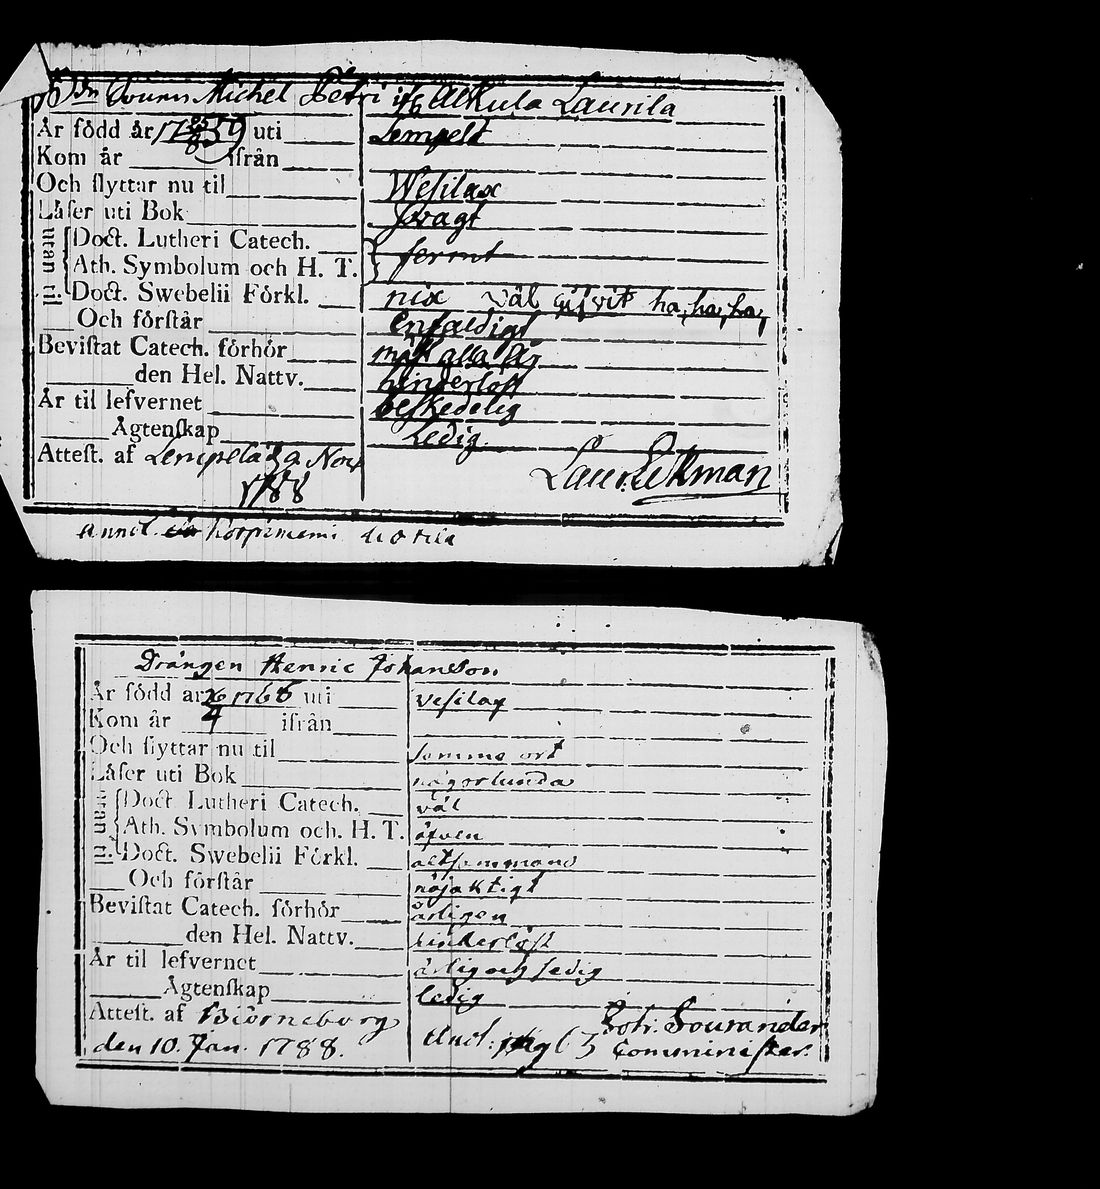 Michel Petri ifr Alkula Laurila
År född år 17 59 uti Lempelä
Kom år ifrån
Och flyttar nu til Wesilax
Läser uti Bok svagt
utan til. Doct. Lutheri Catech.
Ath. Symbolum och H. T. fermt
Doct. Swebelii Förkl. nix väl gifvit ha, ha, ha,
Och förstår enfaldigt
Bevistat Catech. förhör mäst alla
den Hel. Nattv. hinderlöst
Är til lefvernet beskedelig
Ägtenskap Ledig
Attest. af Lempelä Nov. Laur. Ekman
1788
annot. Korpiniemi
Drängen Henric Johansson
År född år 26/4 1766 uti vesilax
Kom år ifrån
Och flyttar nu til samma ort
Läser uti Bok någorlunda
utan til. Doct. Lutheri Catech. väl
Ath. Symbolum och. H. T. äfven
Doct. Swebelii Förkl. altsammans
Och förstår nöjaktigt
Bevistat Catech. förhör årligen
den Hel. Nattv. hinderlöst
Är til lefvernet ärlig och sedig
Ägtenskap ledig
Attest. af Biörneborg
den 10. Jan. 1788. 63 Comminister.